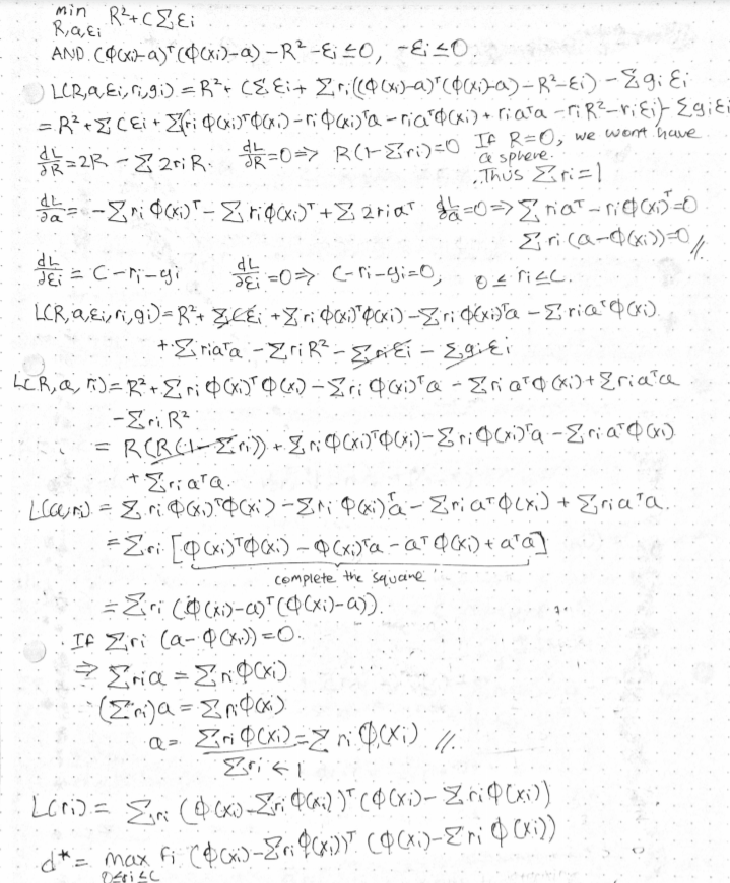 min R²+C∑εi
R,a,εi
AND (Φ(xi)-a)ᵀ(Φ(xi)-a) - R² - εi ≤0, -εi ≤0
L(R,a,εi,ri,gi) = R² + C∑εi + ∑ri((Φ(xi)-a)ᵀ(Φ(xi)-a) - R² - εi) - ∑gi εi
= R² + ∑Cεi + ∑(ri Φ(xi)ᵀΦ(xi) - ri Φ(xi)ᵀa - ri aᵀΦ(xi) + ri aᵀa - ri R² - ri εi) - ∑gi εi
dL/∂R = 2R - ∑2riR. dL/∂R = 0 => R(1-∑ri)=0 If R=0, we wont have
a sphere.
Thus ∑ri=1
dL/∂a = -∑ri Φ(xi)ᵀ - ∑riΦ(xi)ᵀ + ∑2riaᵀ dL/∂a = 0 => ∑riaᵀ - riΦ(xi)ᵀ=0
∑ri (a-Φ(xi))=0 //
dL/∂εi = C - ri - gi dL/∂εi = 0 => C-ri-gi=0, 0 ≤ ri ≤ C.
L(R,a,εi,ri,gi) = R² + ∑Cεi + ∑riΦ(xi)ᵀΦ(xi) - ∑riΦ(xi)ᵀa - ∑riaᵀΦ(xi)
+ ∑riaᵀa - ∑riR² - ∑riεi - ∑giεi
L(R,a,ri) = R² + ∑riΦ(xi)ᵀΦ(xi) - ∑riΦ(xi)ᵀa - ∑riaᵀΦ(xi) + ∑riaᵀa
- ∑riR²
= R(R(1-∑ri)) + ∑riΦ(xi)ᵀΦ(xi) - ∑riΦ(xi)ᵀa - ∑riaᵀΦ(xi)
+ ∑riaᵀa.
L(a,ri) = ∑riΦ(xi)ᵀΦ(xi) - ∑riΦ(xi)ᵀa - ∑riaᵀΦ(xi) + ∑riaᵀa.
= ∑ri [Φ(xi)ᵀΦ(xi) - Φ(xi)ᵀa - aᵀΦ(xi) + aᵀa]
complete the square
= ∑ri (Φ(xi)-a)ᵀ(Φ(xi)-a)).
If ∑ri (a-Φ(xi))=0.
⇒ ∑ria = ∑riΦ(xi)
(∑ri)a = ∑riΦ(xi)
a = ∑riΦ(xi) = ∑riΦ(xi) //.
∑ri ← 1
L(ri) = ∑ri (Φ(xi)-∑riΦ(xi))ᵀ(Φ(xi)-∑riΦ(xi))
d* = max ri (Φ(xi)-∑riΦ(xi))ᵀ (Φ(xi)-∑riΦ(xi))
0≤ri≤C